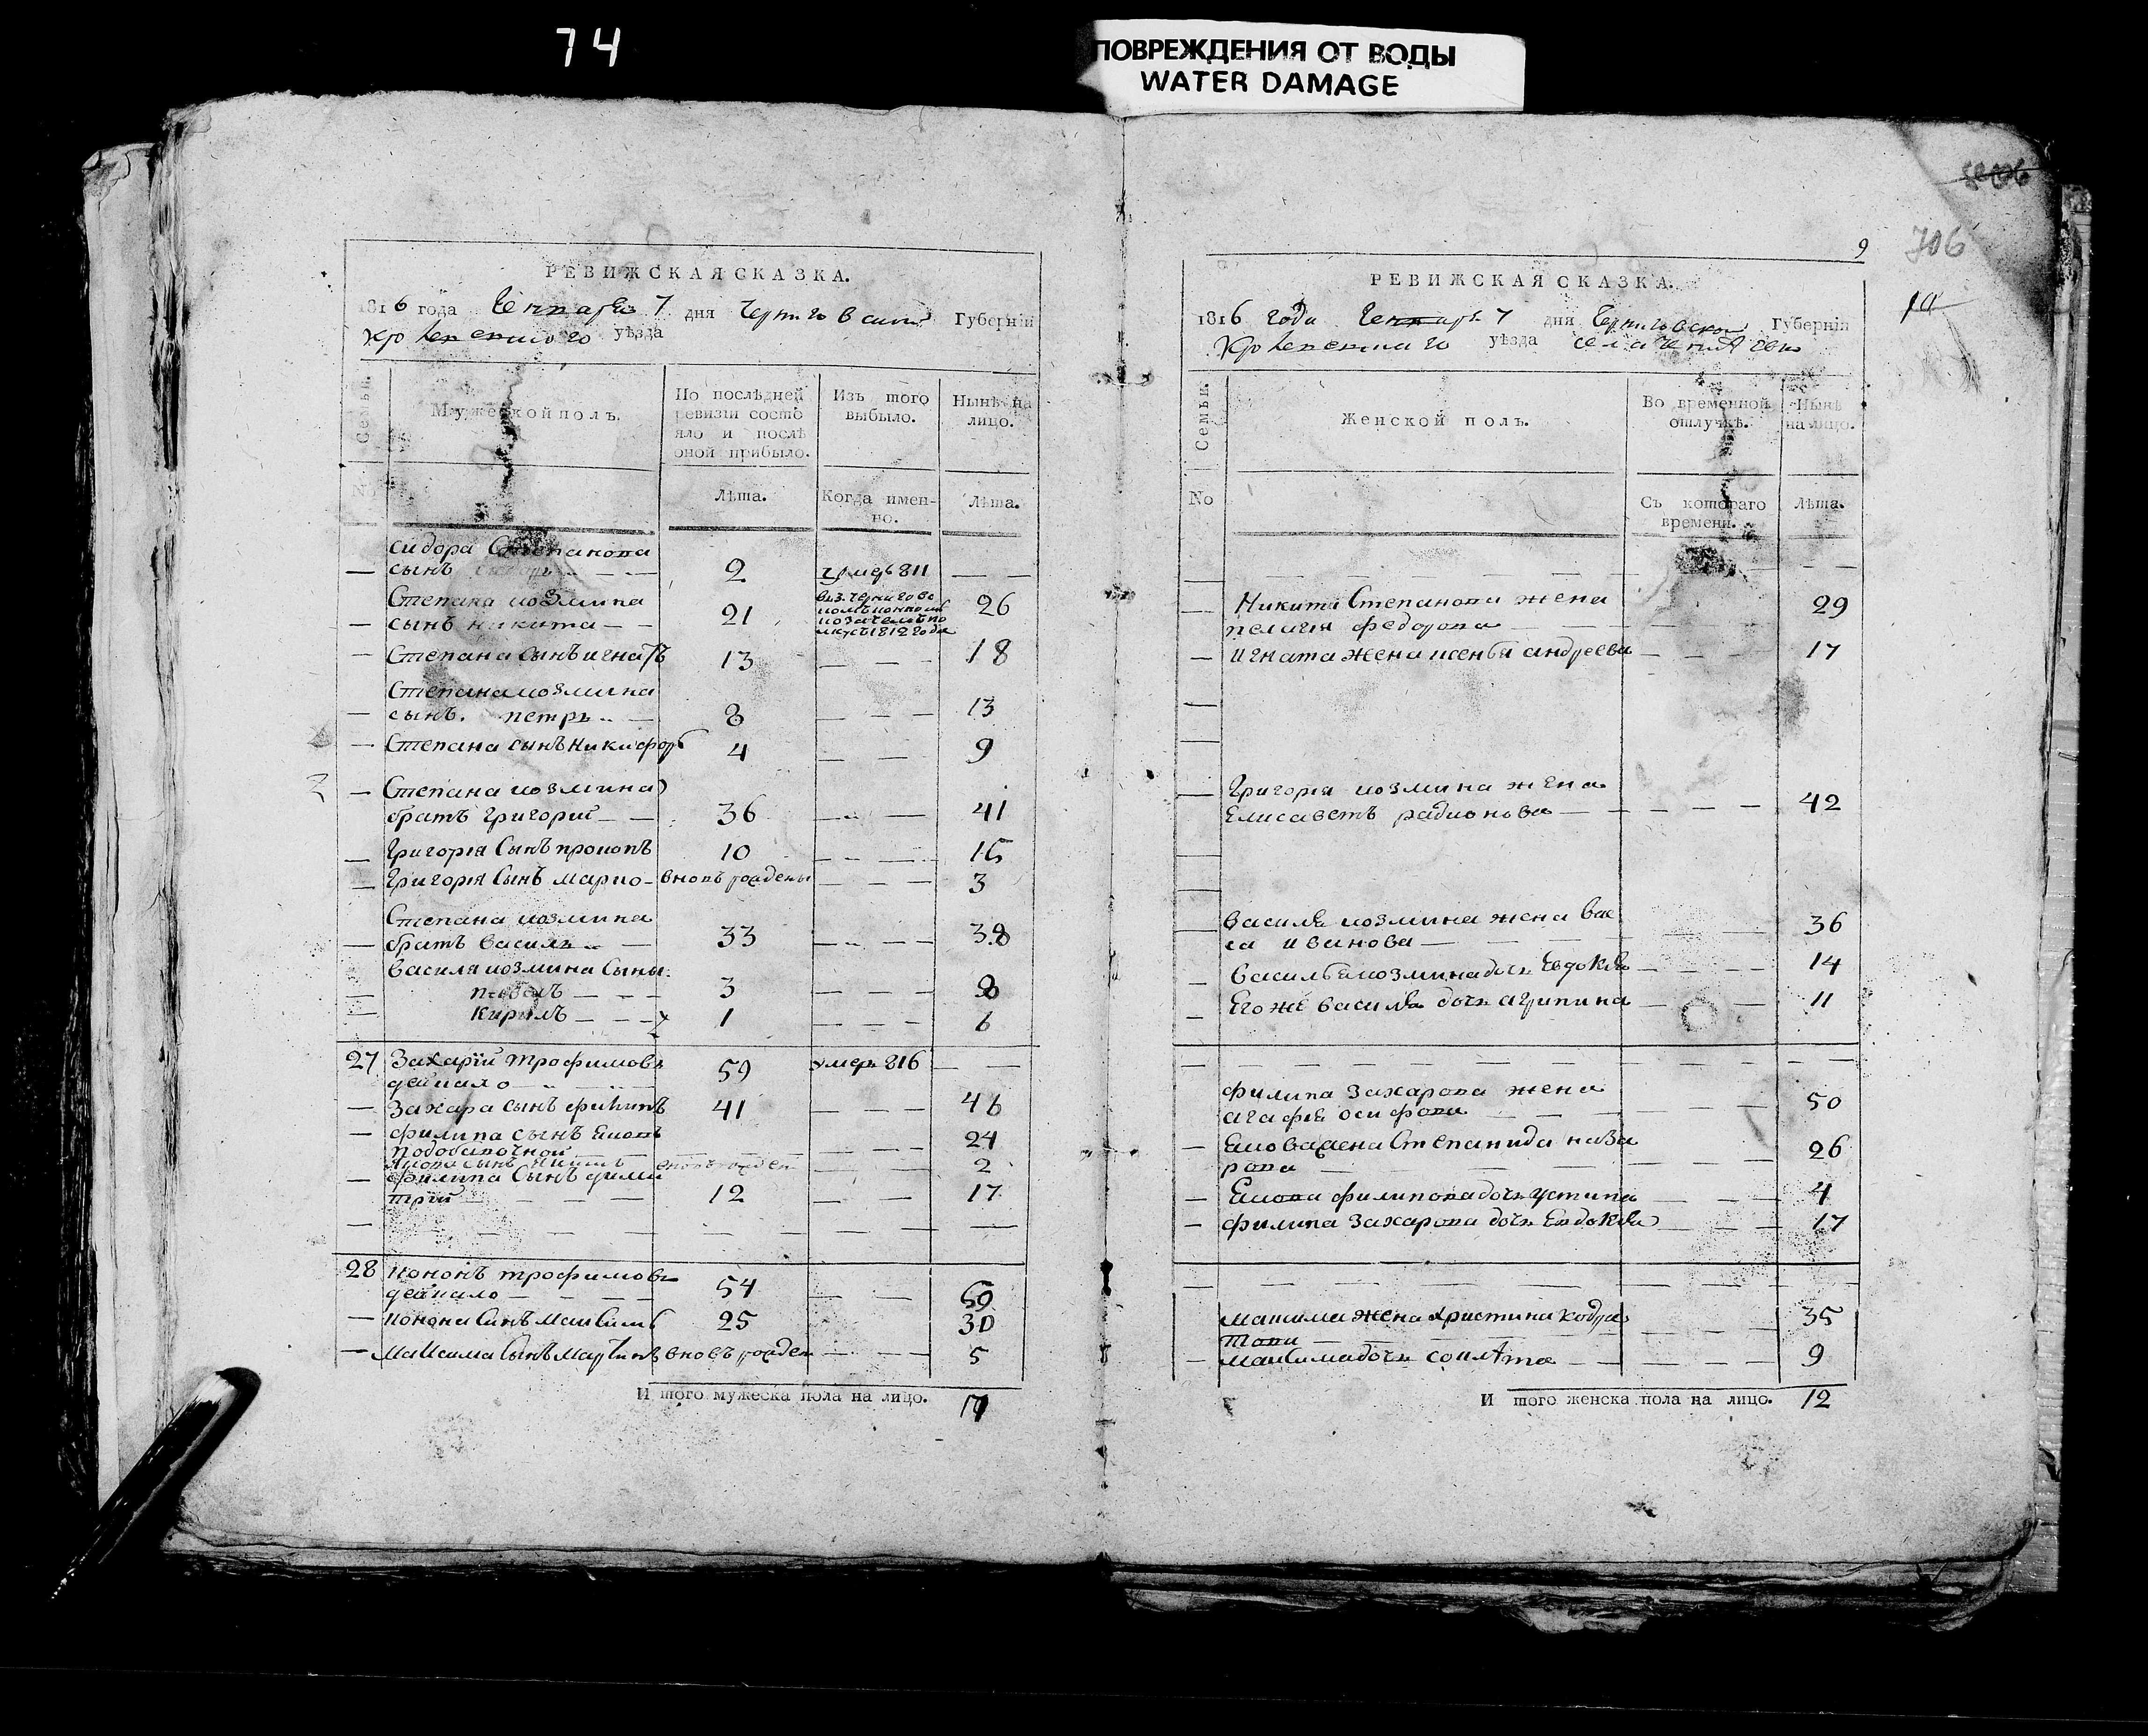 74
ПОВРЕЖДЕНИЯ ОТ ВОДЫ
WATER DAMAGE
РЕВИЖСКАЯ СКАЗКА.
1816 года Генваря 7 дня Черниговской Губерніи
уѣзда
Семьи.
Мужеской полъ.
По послѣдней ревизіи состояло и послѣ оной прибыло.
Изъ того выбыло.
Нынѣ на лицо.
No
Лѣта.
Когда именно.
Лѣта.
Сидора Степанова
сынъ 2 умеръ 811
Степана козмина
сынъ никита 21 26
Степана сынъ игнатъ 13 18
Степана козмина
сынъ петръ 8 13
Степана сынъ никифоръ 4 9
Степана козмина
братъ григорий 36 41
григорія сынъ прокопъ 10 15
григорія сынъ марко вновь рожденъ 3
Степана козмина
братъ василь 33 38
василя козмина сыны
павелъ 3 8
кирилъ 1 6
27 Захарій трофимовъ 59 умеръ 816
Захара сынъ филипъ 41 46
филипа сынъ 24
вновь рожденъ 2
филипа сынъ дими
трій 12 17
28 кононъ трофимовъ 54 59
конона синъ максимъ 25 30
максима сынъ мартинъ вновь рожден 5
И того мужеска пола на лицо. 17
9
706
РЕВИЖСКАЯ СКАЗКА.
1816 года Генваря 7 дня Черниговской Губерніи
уѣзда села
Семьи.
Женской полъ.
Во временной отлучкѣ.
Нынѣ на лицо.
No
Съ котораго времени.
Лѣта.
Никити Степанова жена
пелагія федорова 29
игната жена ксенія андреева 17
григорія козмина жена
Елисаветъ радионова 42
василя козмина жена вас
са иванова 36
василья козмина дочь Евдокія 14
Его же василя дочь агрипина 11
филипа захарова жена
агафія осифова 50
жена Степанида наза
рова 26
филипова дочь устина 4
филипа захарова дочь Евдокія 17
максима жена христина кодра
това 35
максима дочь 9
И того женска пола на лицо. 12